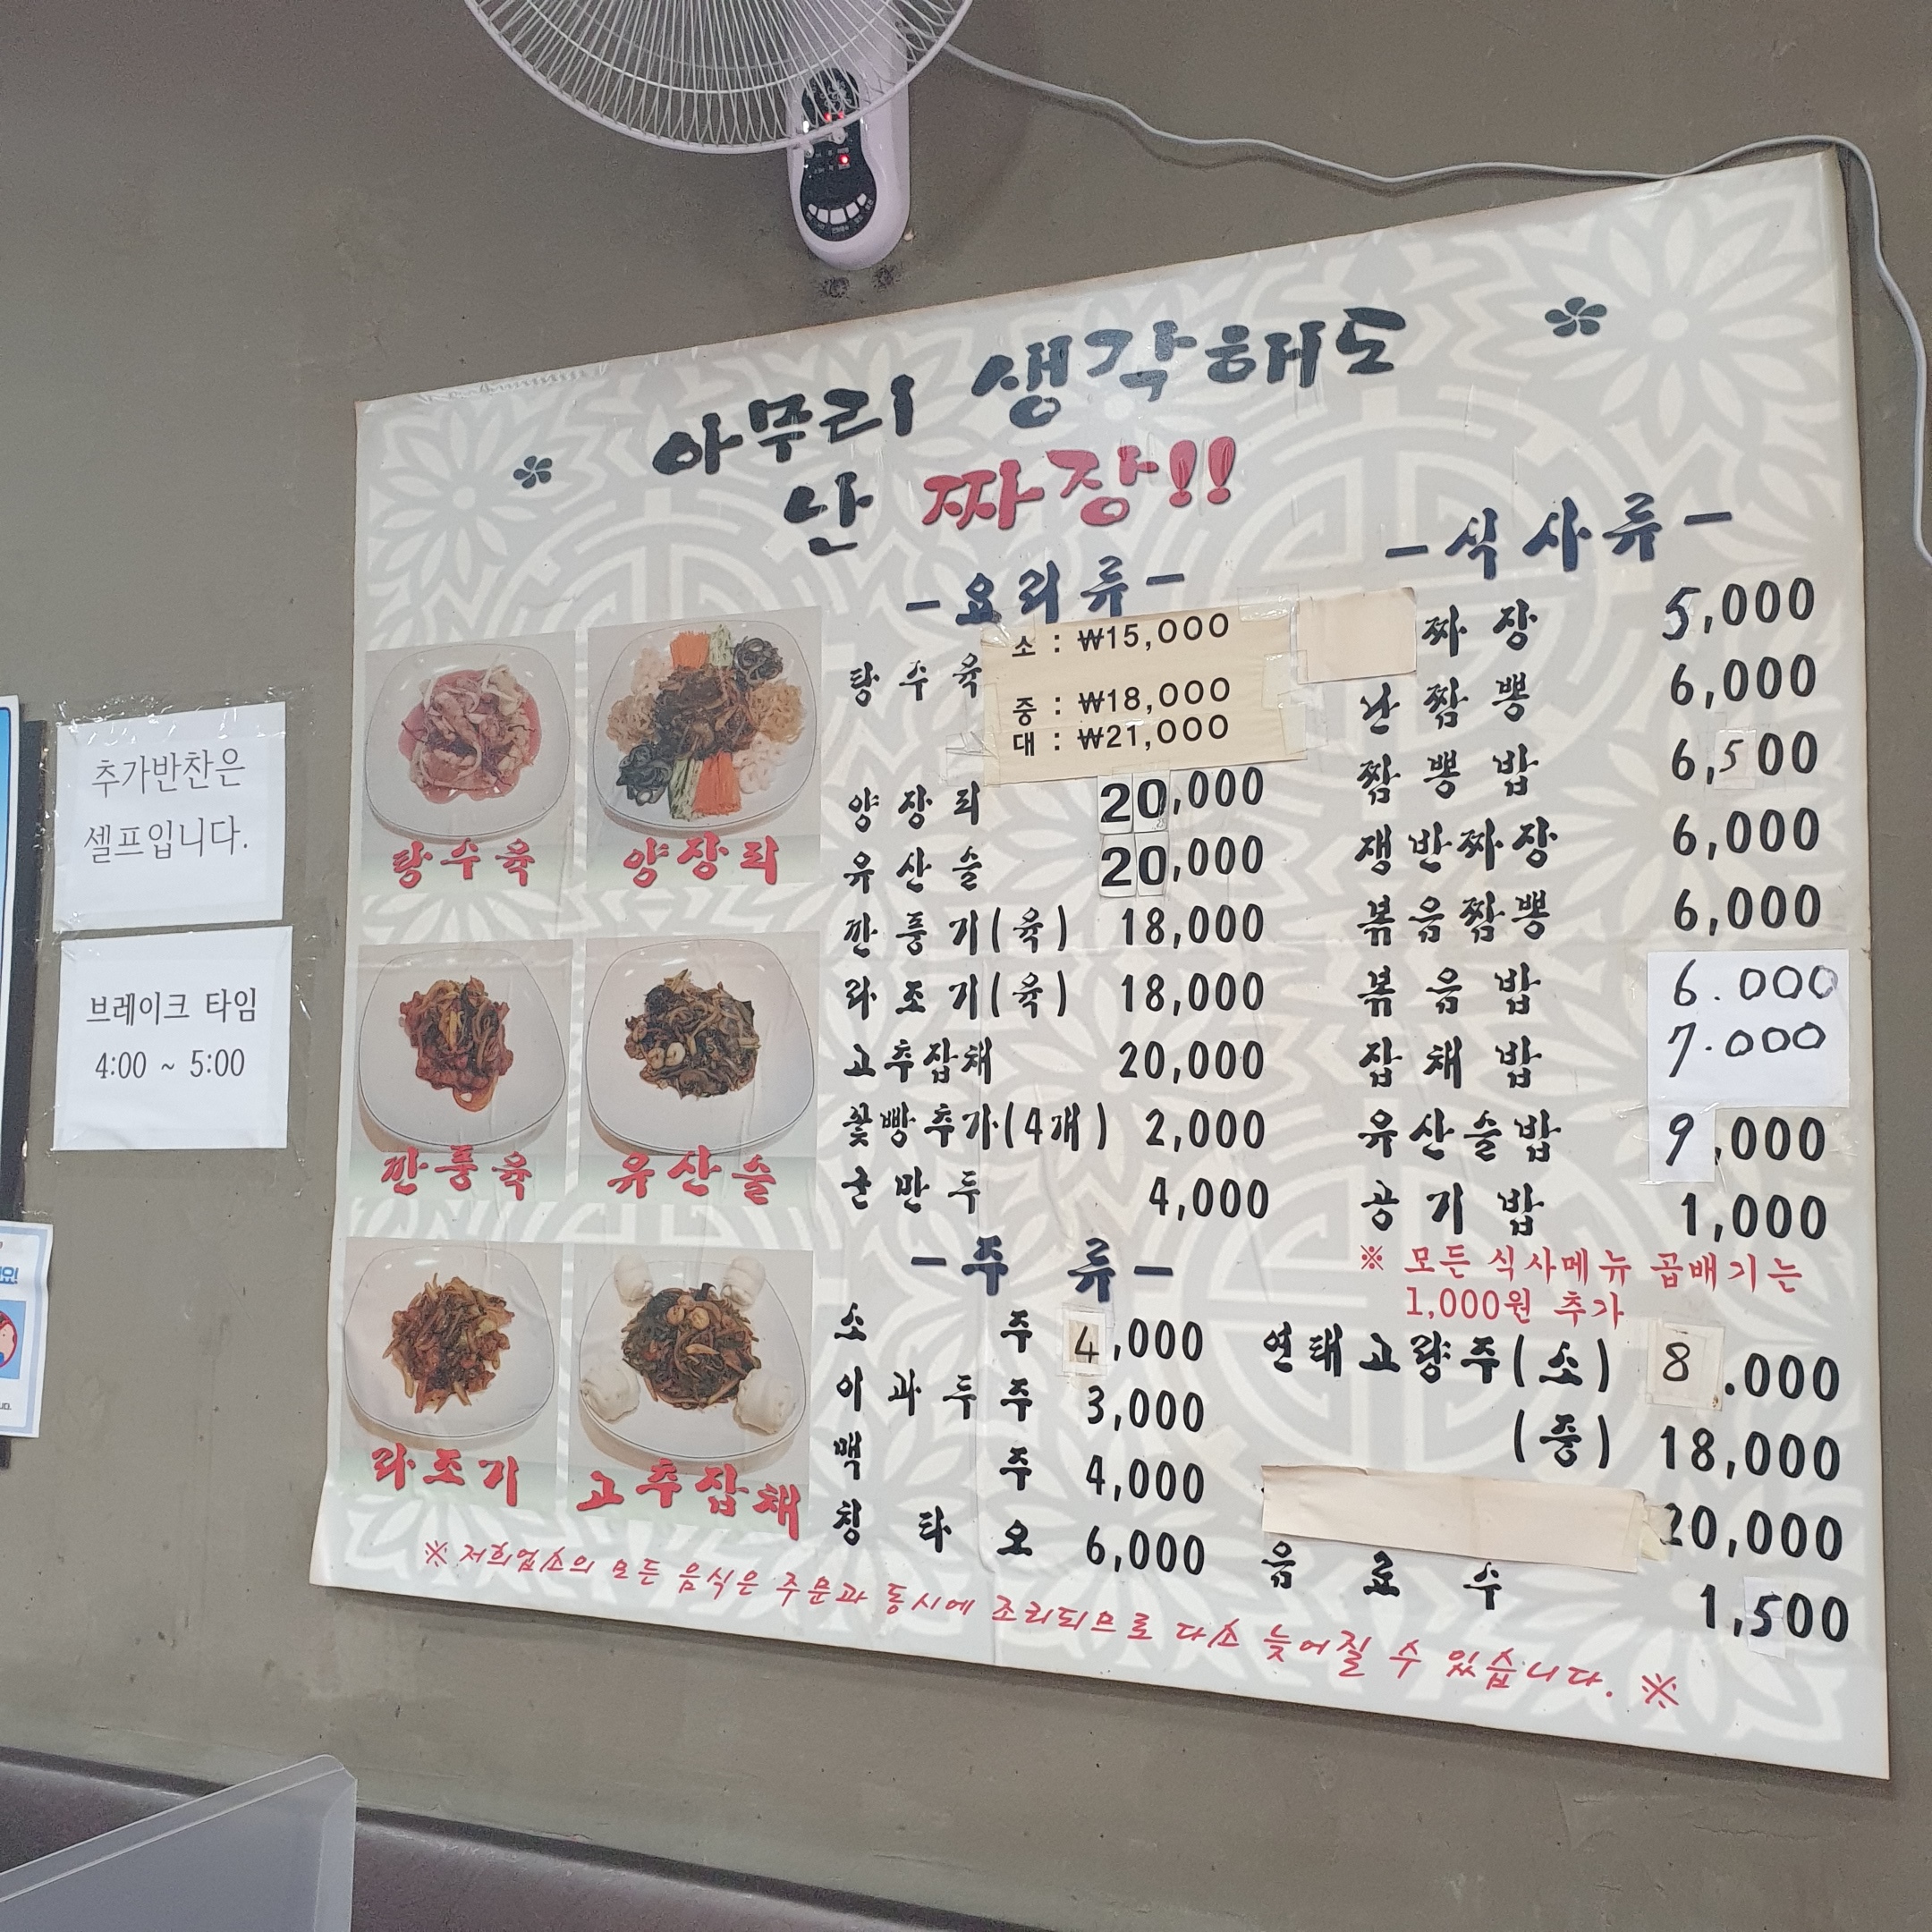 아무리 생각해도
난 짜장!!
-요리류-
탕수육
소 : ₩15,000
중 : ₩18,000
대 : ₩21,000
양장피 20,000
유산슬 20,000
깐풍기(육) 18,000
라조기(육) 18,000
고추잡채 20,000
꽃빵추가(4개) 2,000
군만두 4,000
-주류-
소주 4,000
이과두주 3,000
빽주 4,000
칭타오 6,000
-식사류-
짜장 5,000
난짬뽕 6,000
짬뽕밥 6,500
쟁반짜장 6,000
볶음짬뽕 6,000
볶음밥 6.000
잡채밥 7.000
유산슬밥 9,000
공기밥 1,000
※ 모든 식사메뉴 곱배기는
1,000원 추가
연태고량주(소) 8.000
(중) 18,000
20,000
음료수 1,500
탕수육
양장피
깐풍육
유산슬
라조기
고추잡채
※ 저희업소의 모든 음식은 주문과 동시에 조리되므로 다소 늦어질 수 있습니다. ※
추가반찬은
셀프입니다.
브레이크 타임
4:00 ~ 5:00